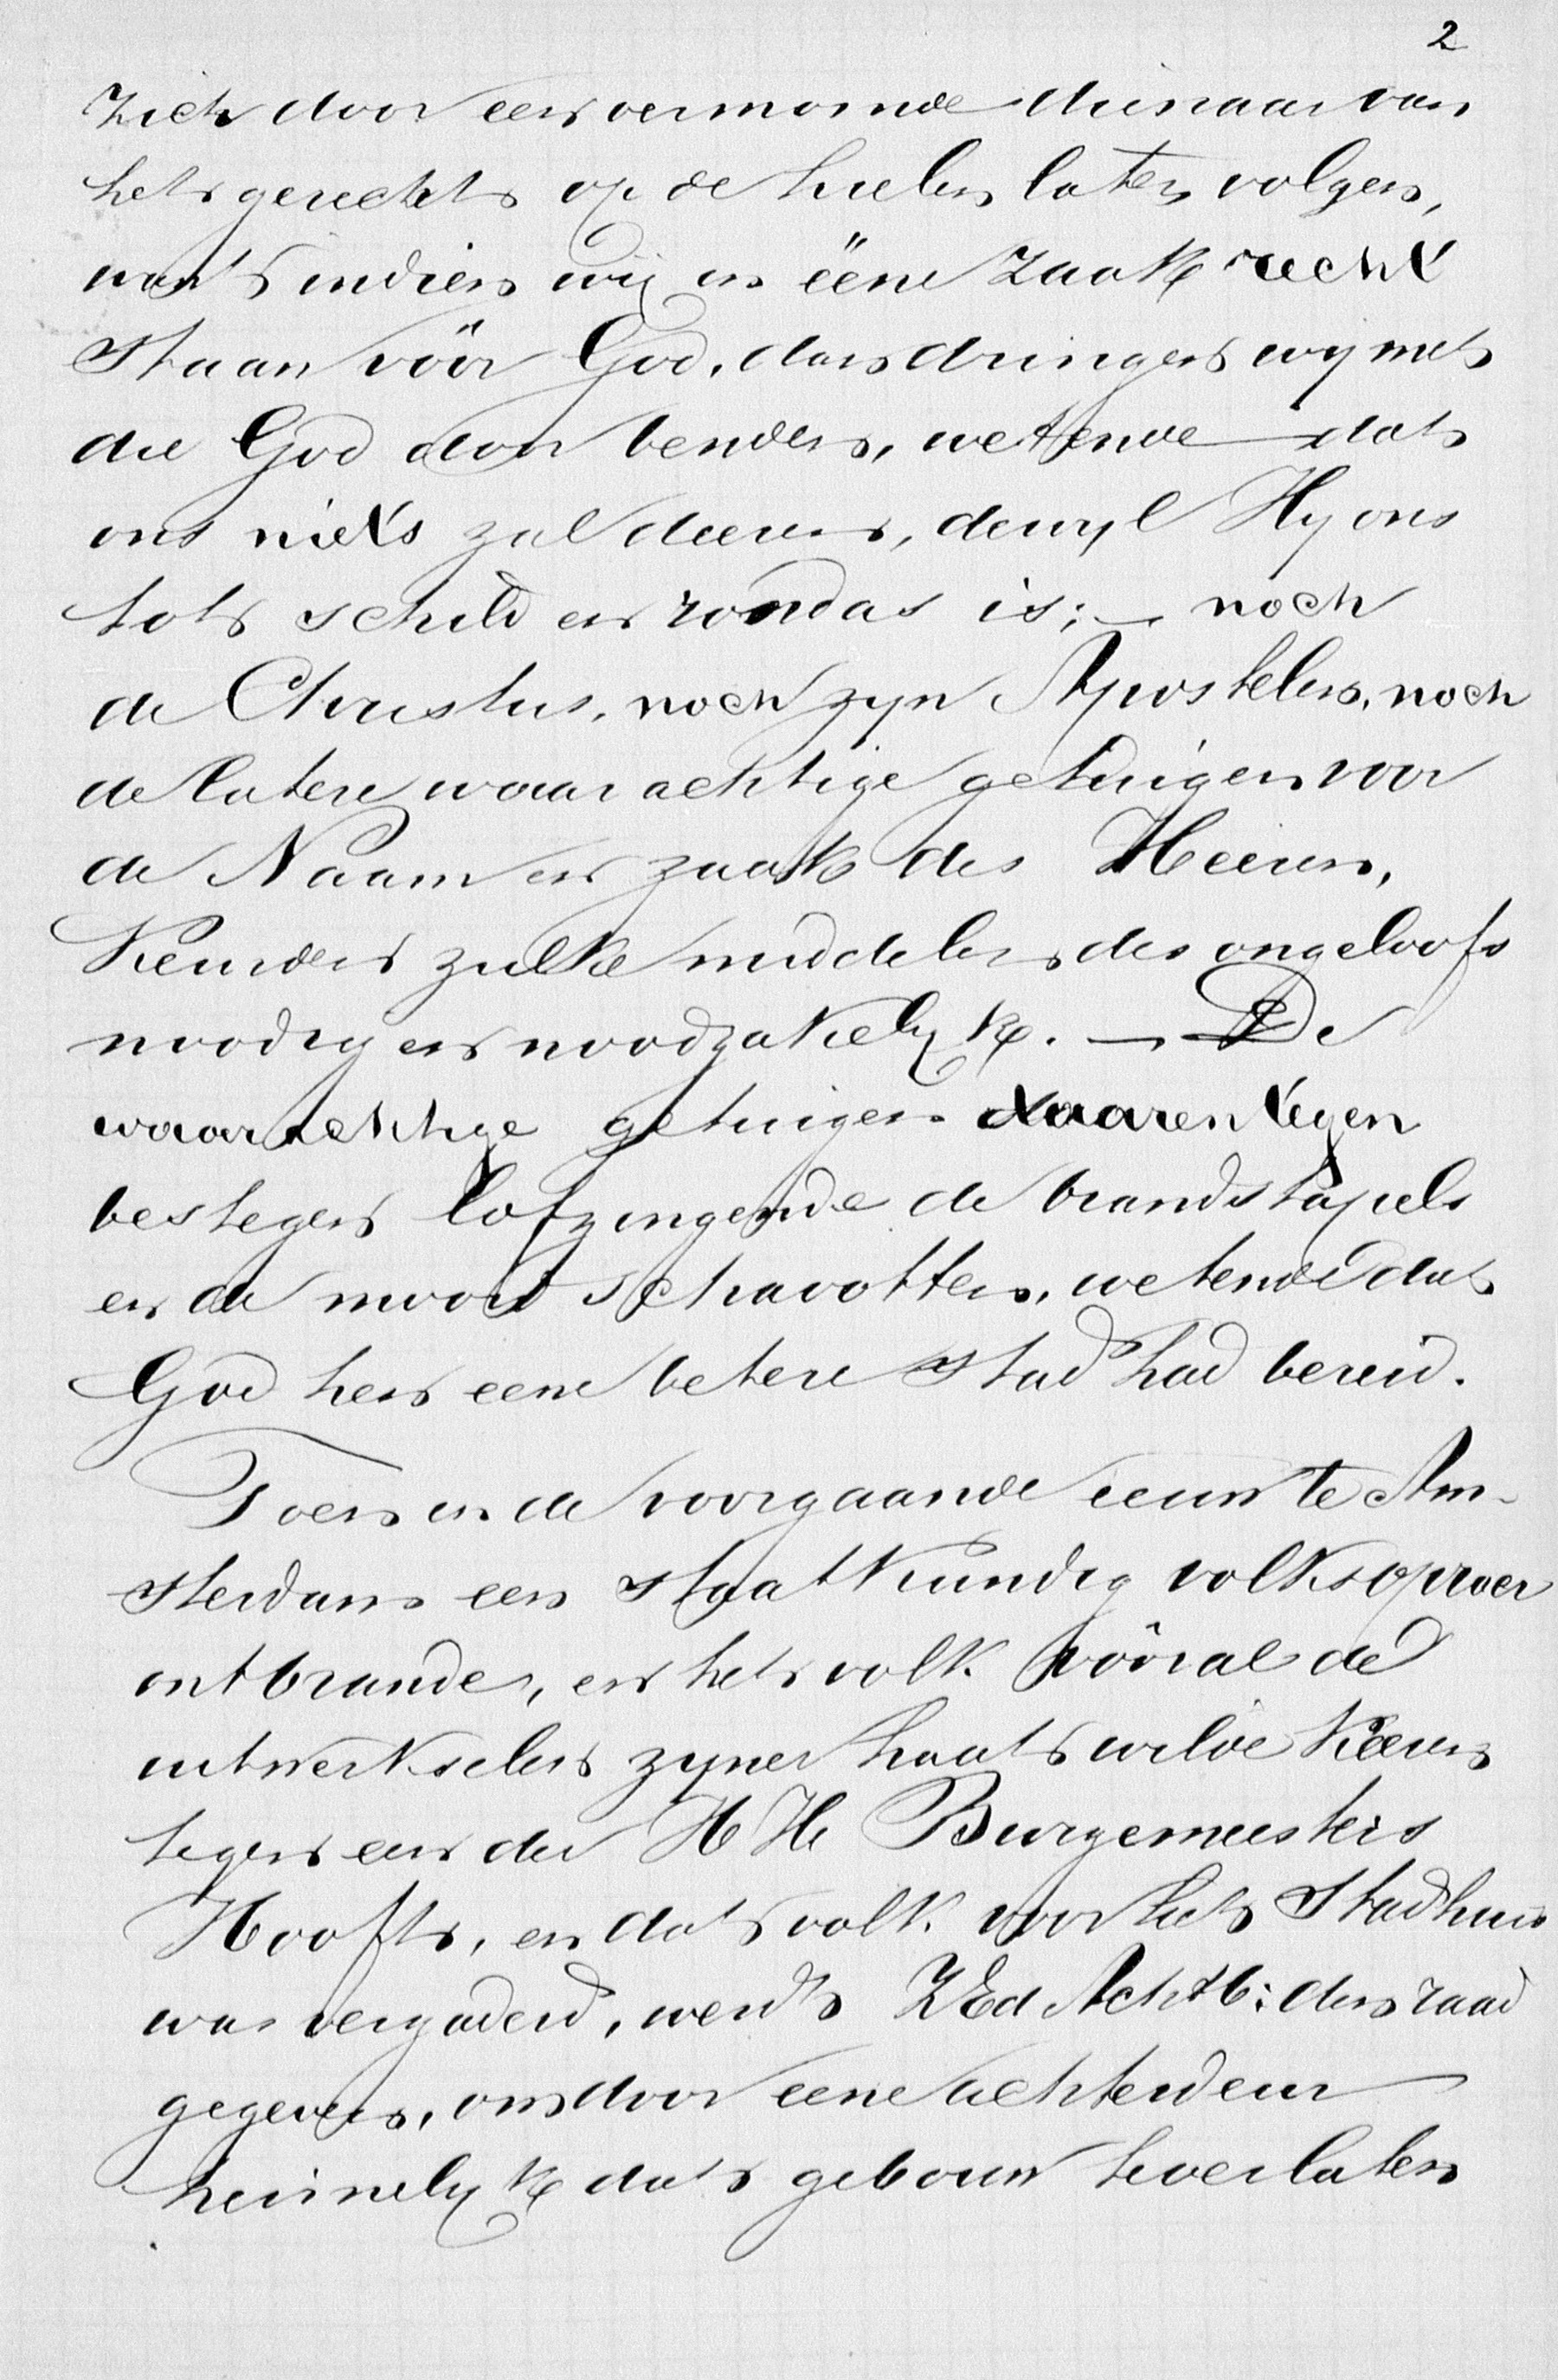 2
zich door een vermomde dienaar van
het gerecht op de hielen laten volgen,
want indien wij in ééne zaak recht
staan vóór God, dan dringen wij met
die God door benden, wetende dat
ons niets zal deeren, dewyl Hy ons
tot schild en rondas is; — noch
de Christus, noch zyn Apostelen, noch
de latere waarachtige getuigen voor
de Naam en zaak des Heeren,
keurden zulke middelen des ongeloofs
noodig en noodzakelyk. — De
waarachtige getuigen daarentegen
bestegen lofzingende de brandstapels
en de moordschavotten, wetende dat
God hen eene betere stad had bereid.
Toen in de voorgaande eeuw te Am-
sterdam een staatkundig volksoproer
ontbrande, en het volk vóóral de
uitwerkselen zyner haat wilde keeren
tegen een der HH Burgemeesters
Hooft, en dat volk voor het Stadhuis
was vergaderd, werd ZEd Achtb: den raad
gegeven, om door eene achterdeur
heimelyk dat gebouw te verlaten